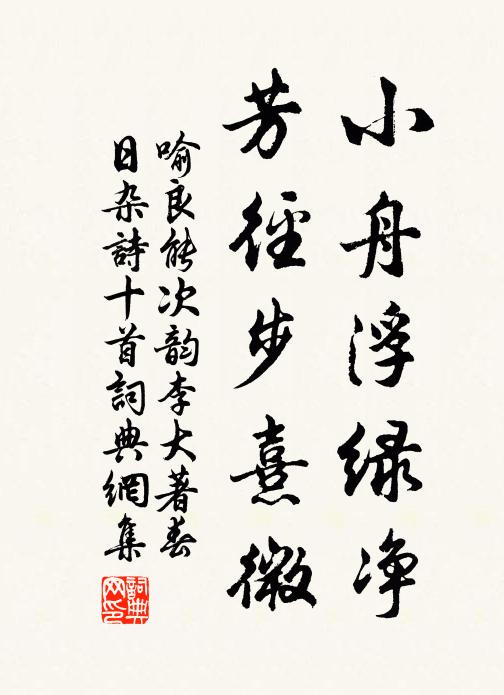 小舟浮绿净
芳径步熹微
喻良能次韵李大著春
日杂诗十首词典网集
詞典网印